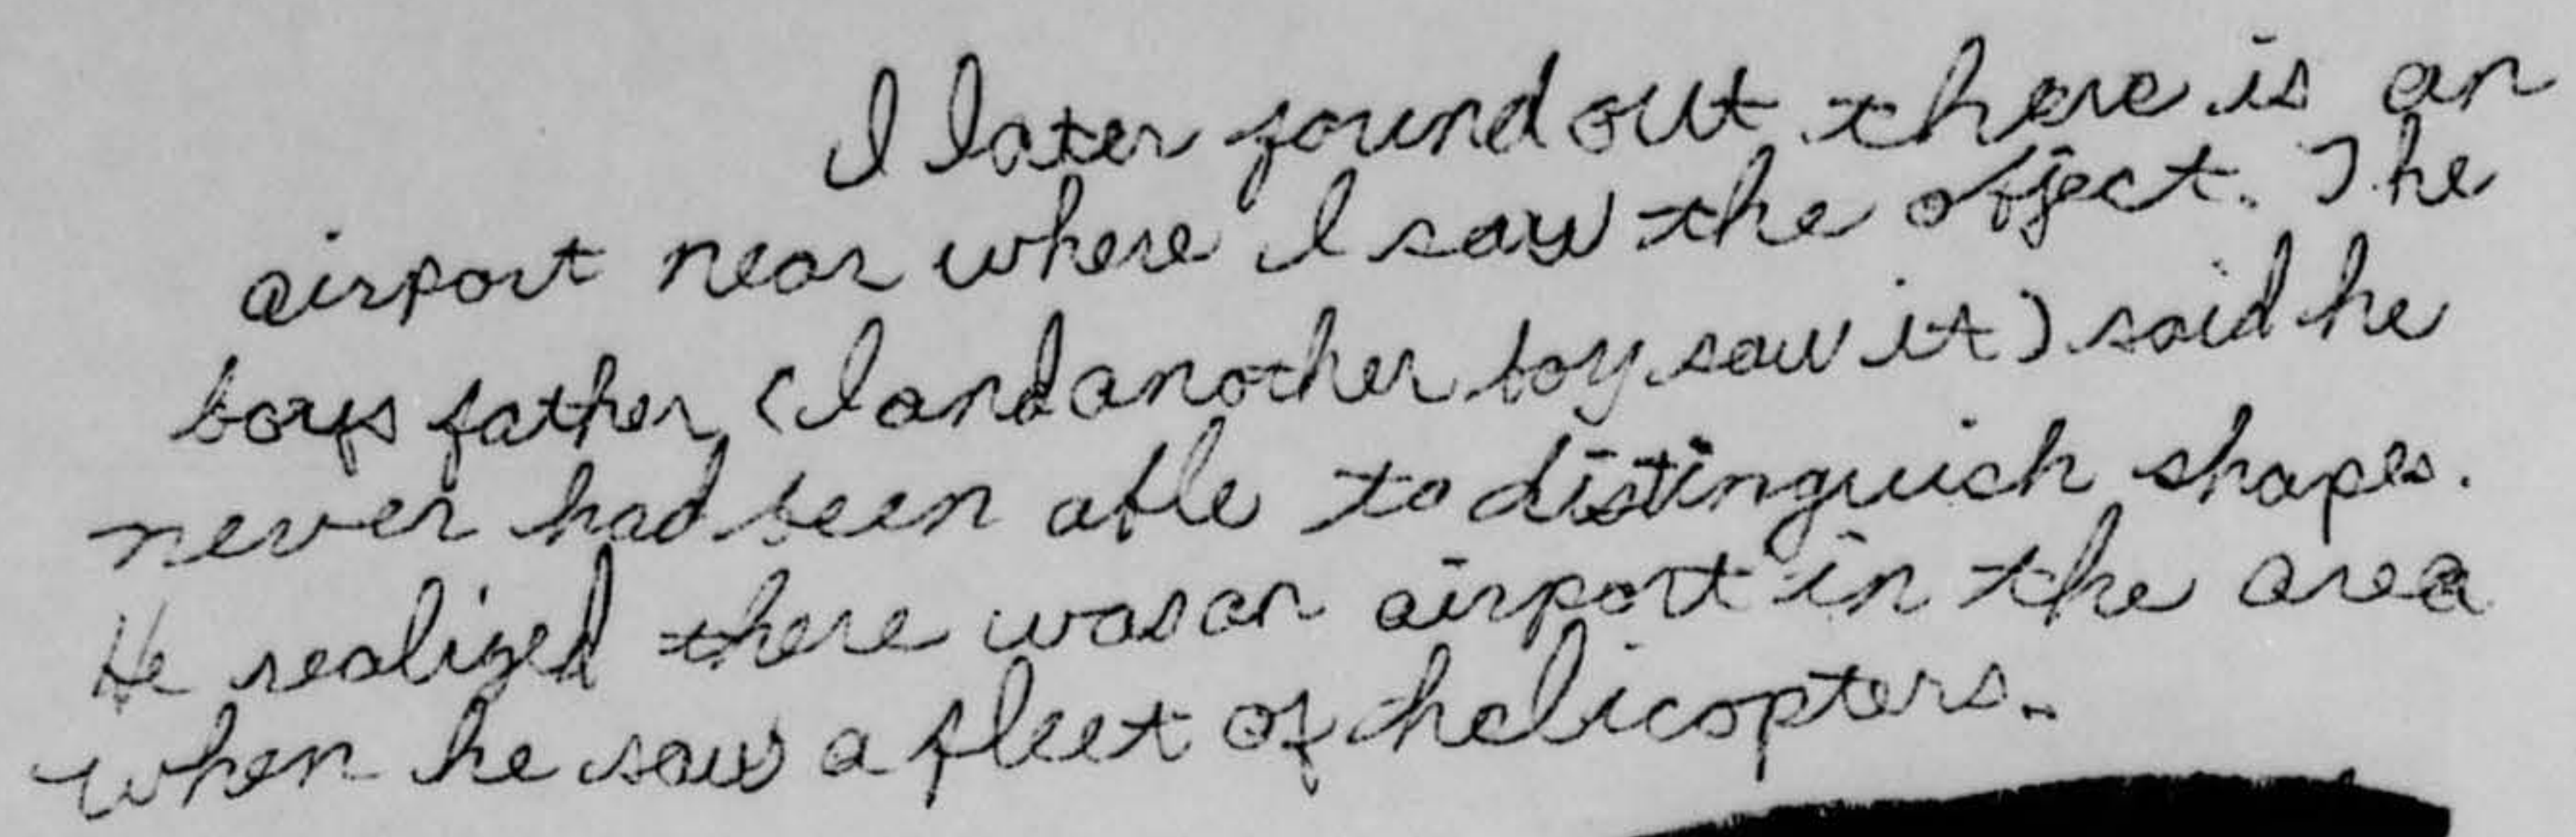 I later found out there is an
airport near where I saw the object. The
boys father, (I and another boy saw it) said he
never had been able to distinguish shapes.
He realized there was an airport in the area
when he saw a fleet of helicopters.